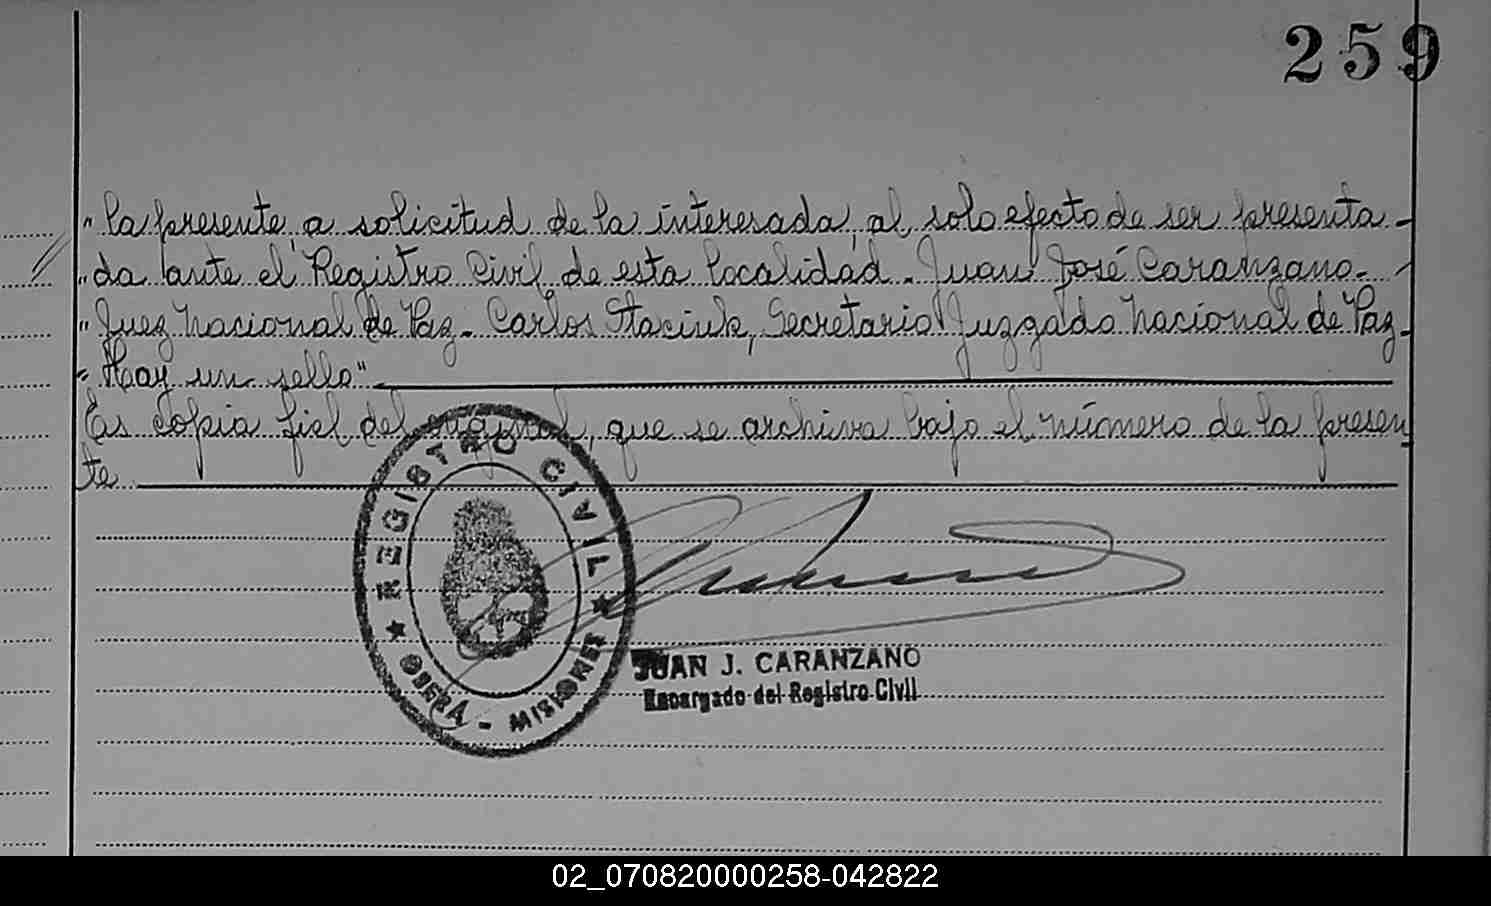 259
"la presente, a solicitud de la interesada, al solo efecto de ser presenta-
"da ante el Registro Civil de esta localidad. Juan José Caranzano.-
"Juez Nacional de Paz.- Carlos Staciuk, Secretario Juzgado Nacional de Paz.-
"Hay un sello"
Es copia fiel del original, que se archiva bajo el número de la presen
te
REGISTRO CIVIL
OBERÁ - MISIONES
JUAN J. CARANZANO
Encargado del Registro Civil
02_070820000258-042822